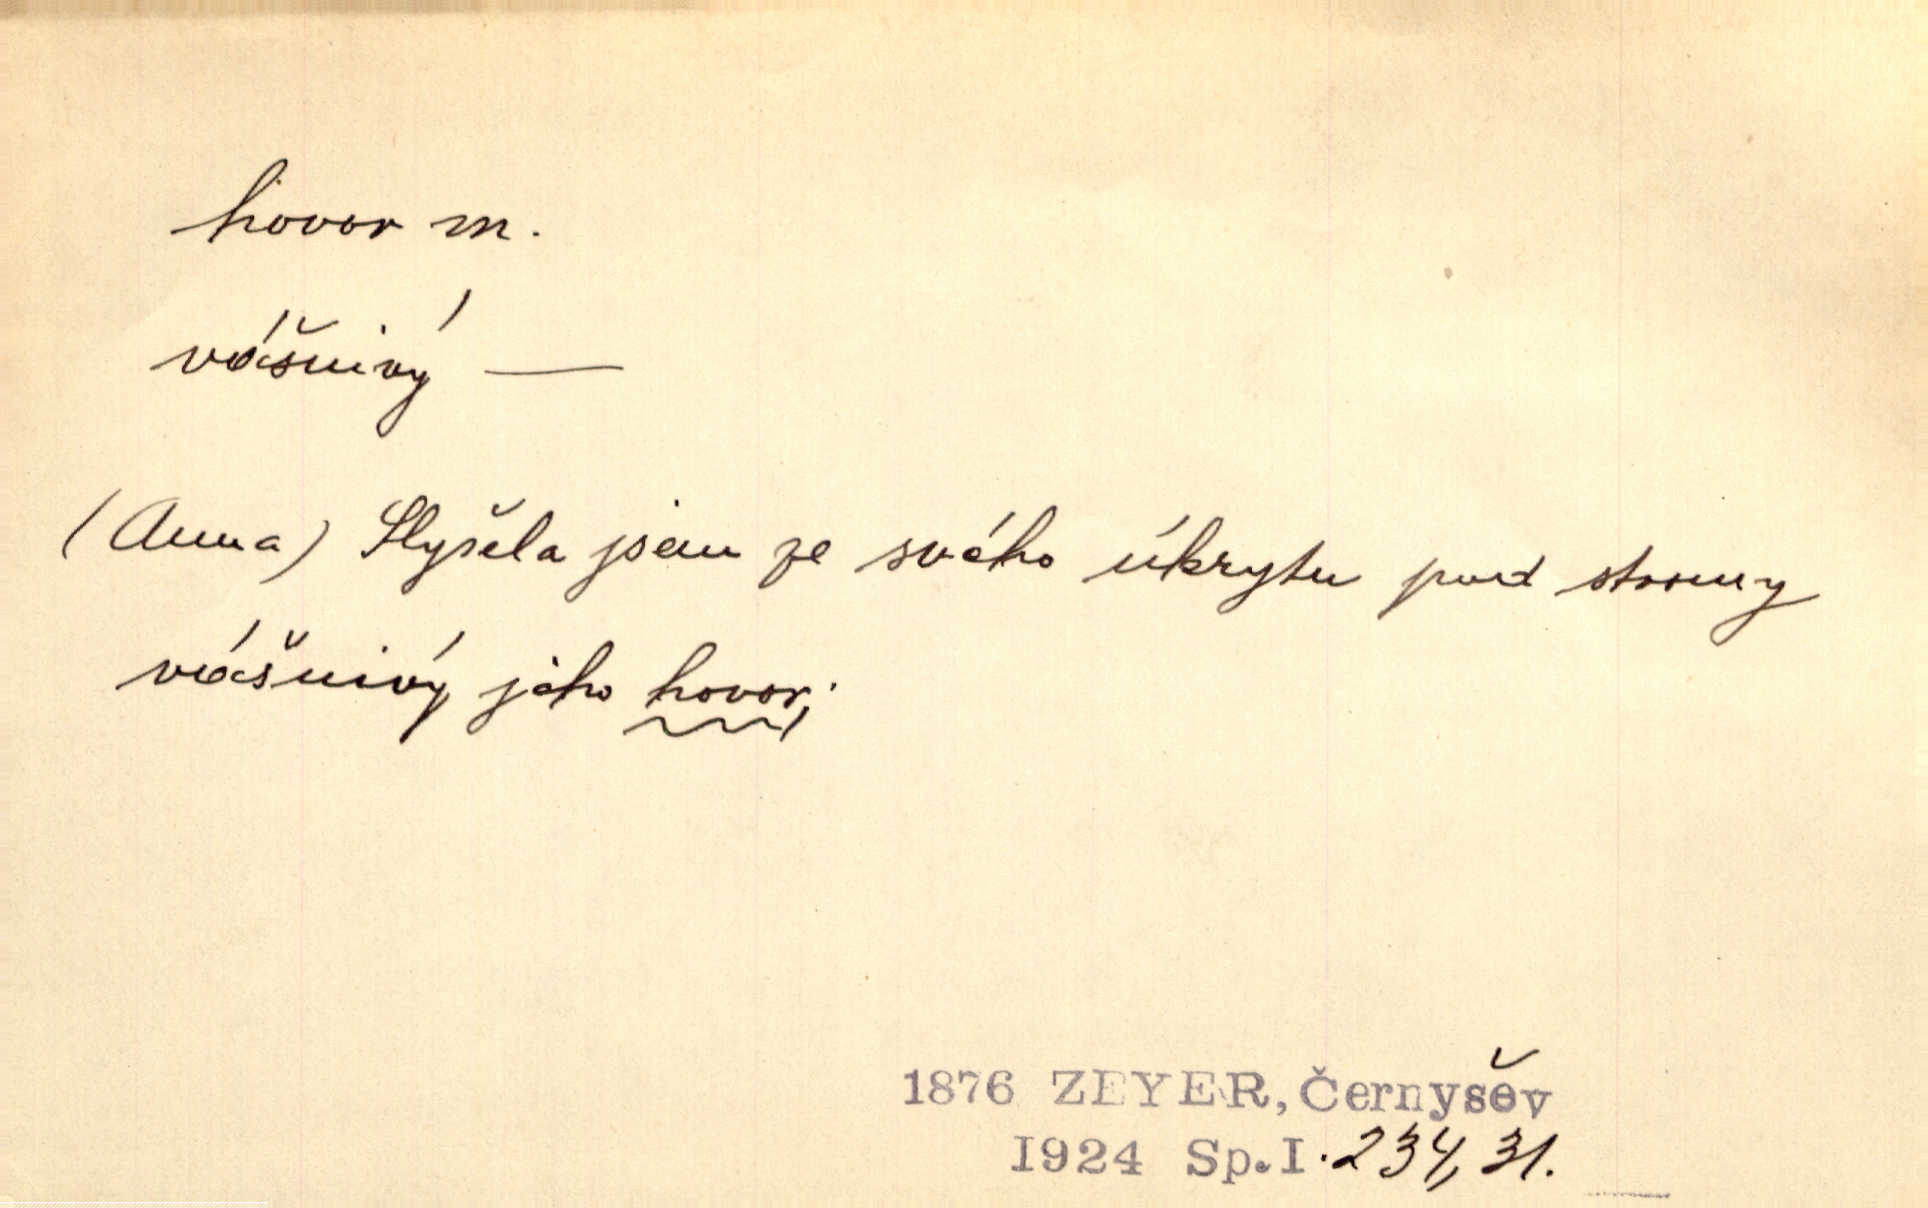 hovor m.
vášnivý —
(Anna) Slyšela jsem ze svého úkrytu pod stromy
vášnivý jeho hovor;
1876 ZEYER, Černyšev
1924 Sp.I. 234, 31.